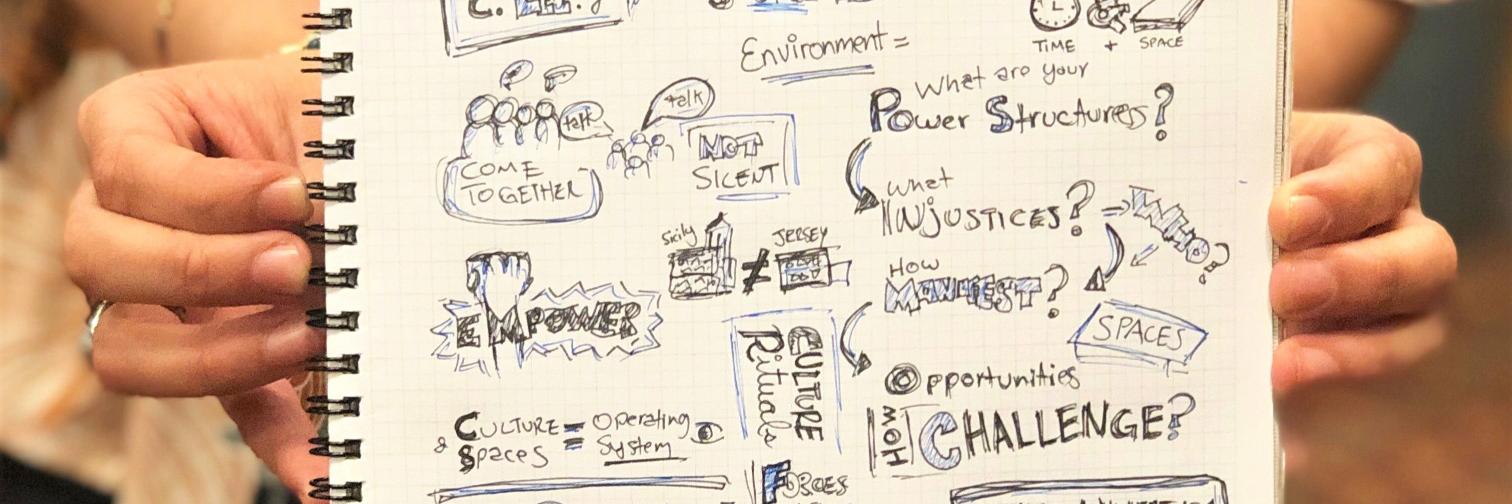 Environment =
TIME + SPACE
talk
talk
COME
TOGETHER
NOT
SILENT
What are your
Power Structures?
what
INJUSTICES?
WHO?
How
MANIFEST?
SPACES
Opportunities
HOW
CHALLENGE?
Sicily ≠ JERSEY
EMPOWER
CULTURE
Rituals
CULTURE = Operating
& Spaces System
FORCES